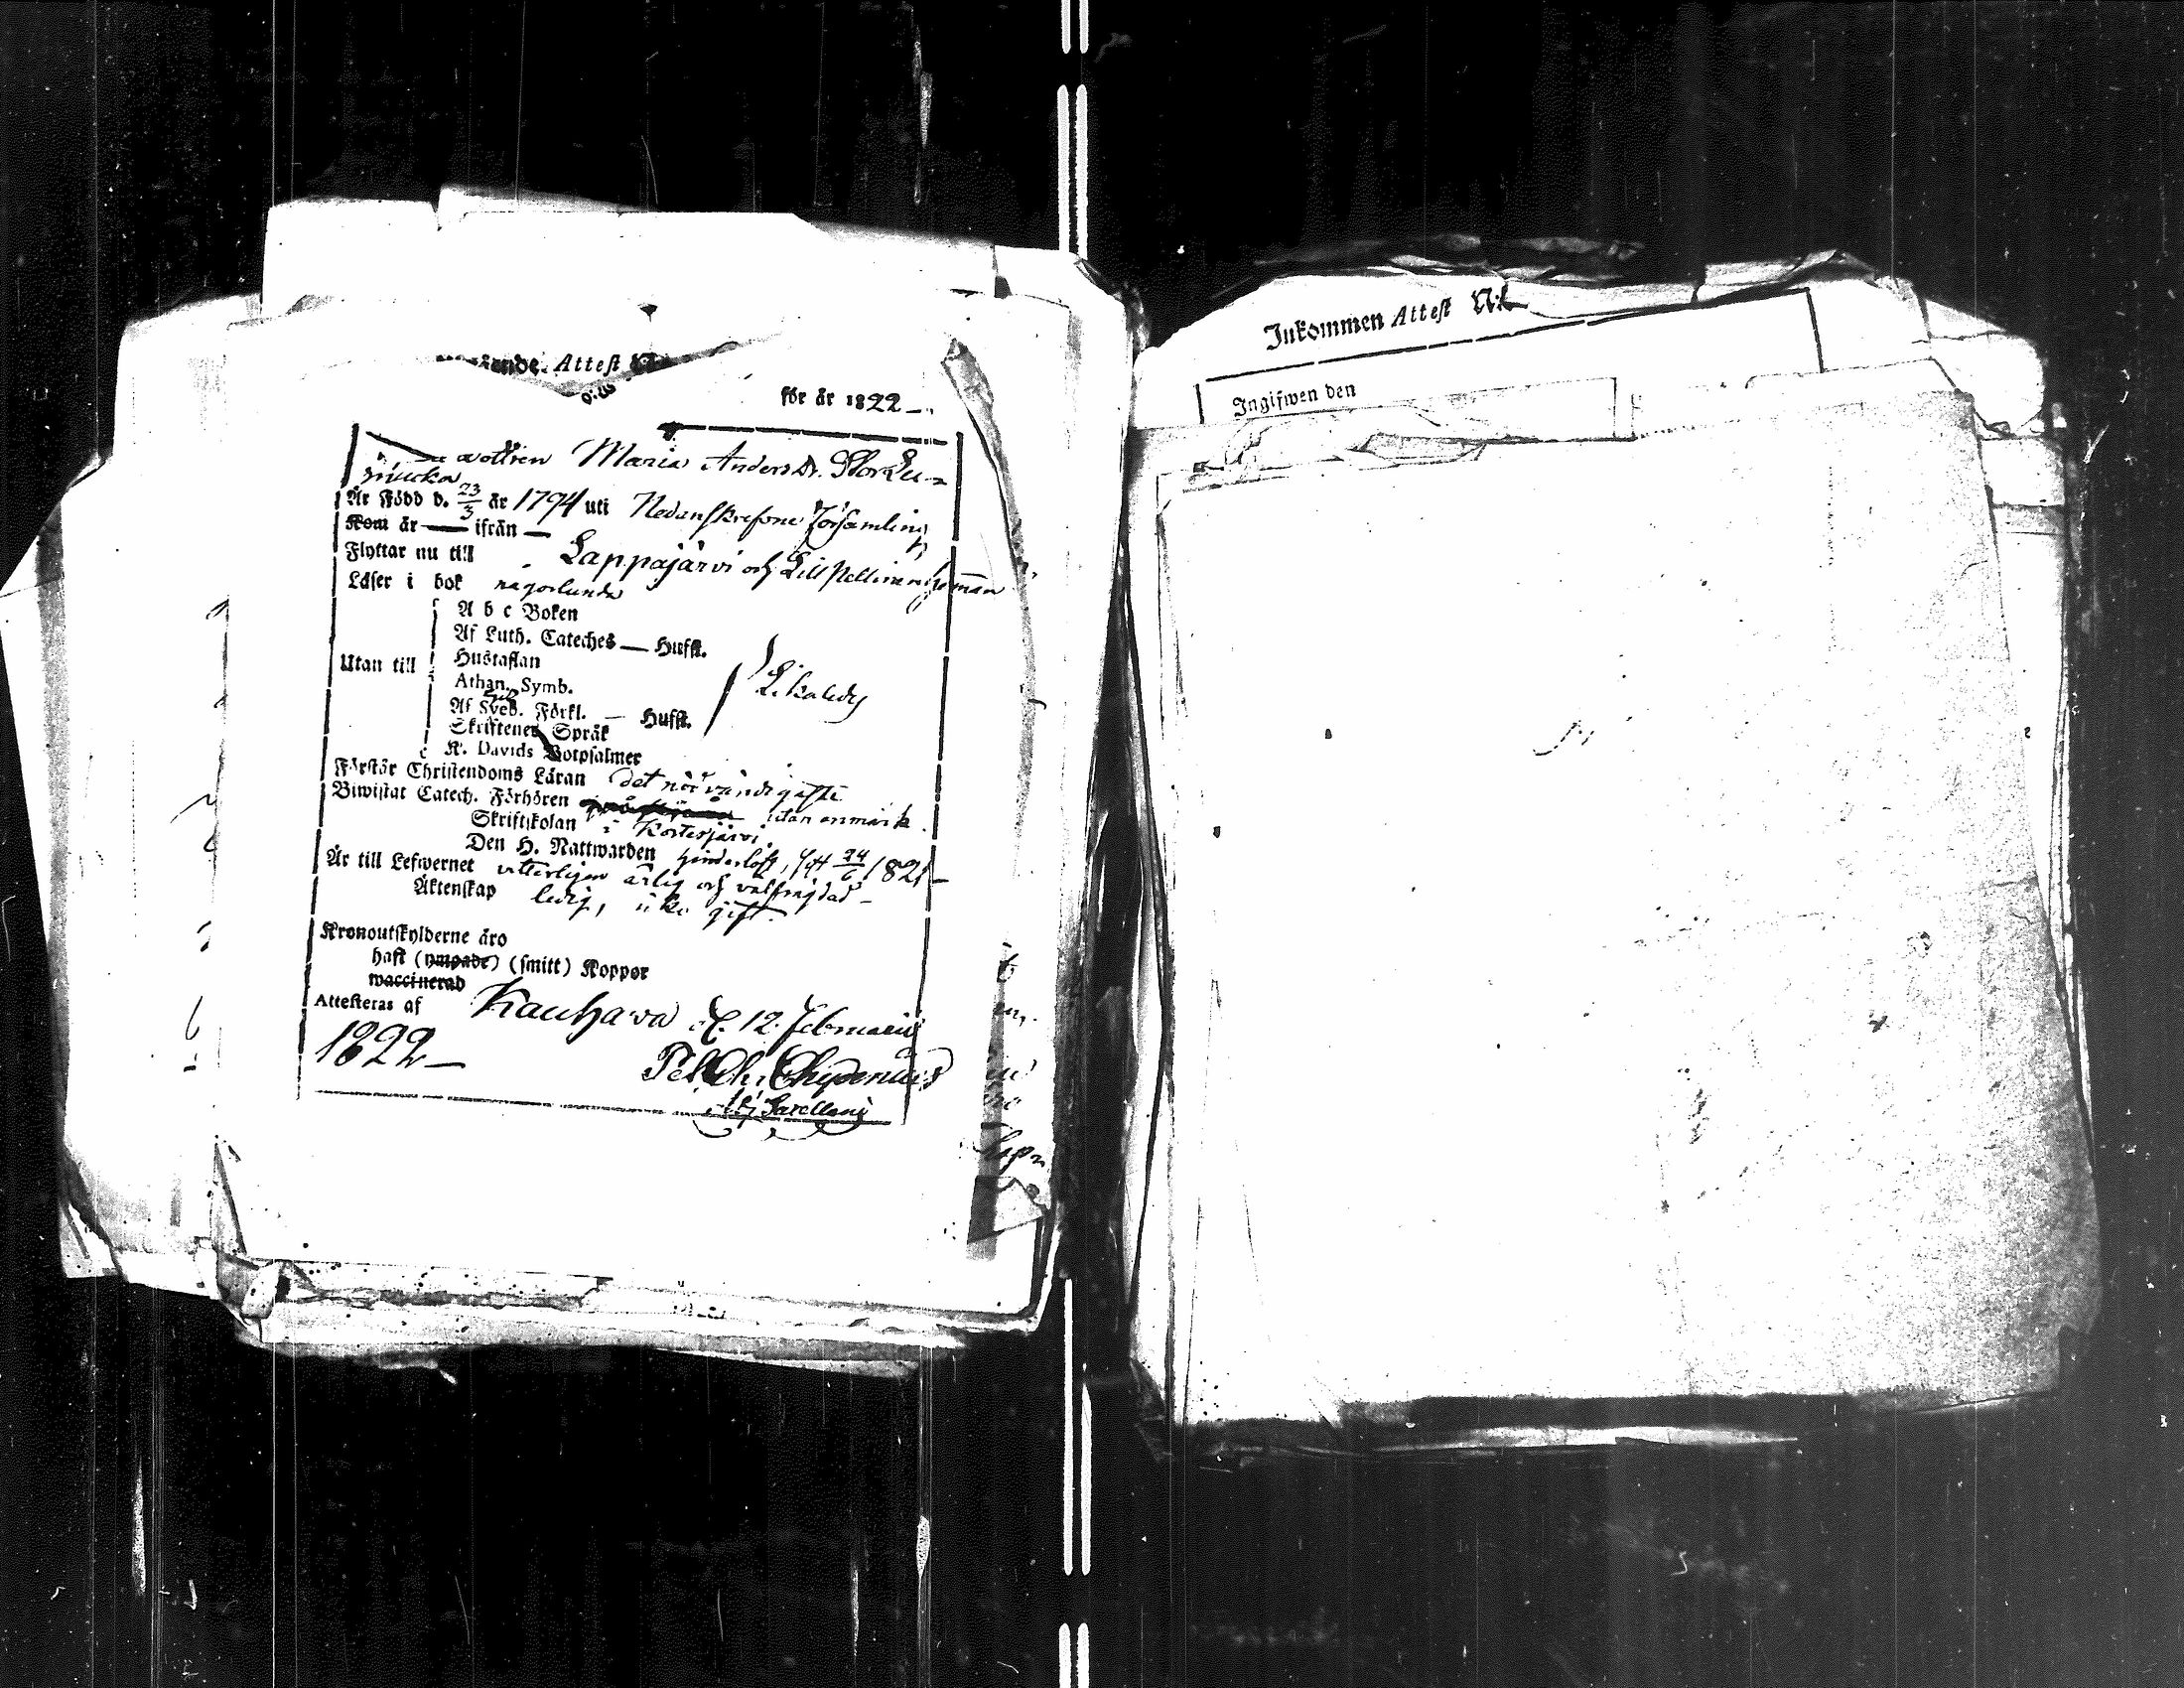 Attest N:o
för år 1822 —
dottren Maria Andersdr. Stor Lu-
mucka
Är Född d. 23/3 år 1794 uti Nedanskrefvne Församling
Kom år — ifrån —
Flyttar nu till Lappajärvi och Lill Pellinen hemman
Läser i bok någorlunda
A b c Boken
Af Luth. Cateches — Hufst.
Utan till Hustaflan
Athan. Symb.
Likaledes
Af Sveb. Förkl. — Hufst.
Skriftenes Språk
K. Davids Botpsalmer
Förstår Christendoms Läran det nödvändigaste
Biwistat Catech. Förhören utan anmärk.
Skriftskolan i Kortesjärvi
Den H. Nattwarden hinderlöst, sist 24/6 1821 —
Är till Lefwernet vitterligen ärlig och välfrägdad —
Äktenskap ledig, icke gift.
Kronoutskylderne äro
haft (ympade) (smitt) Koppor
waccinerad
Attesteras af Kauhava d. 12. Februarii
1822 —
Pehr Chr. Chydenius
Inkommen Attest N:o
Ingifwen den